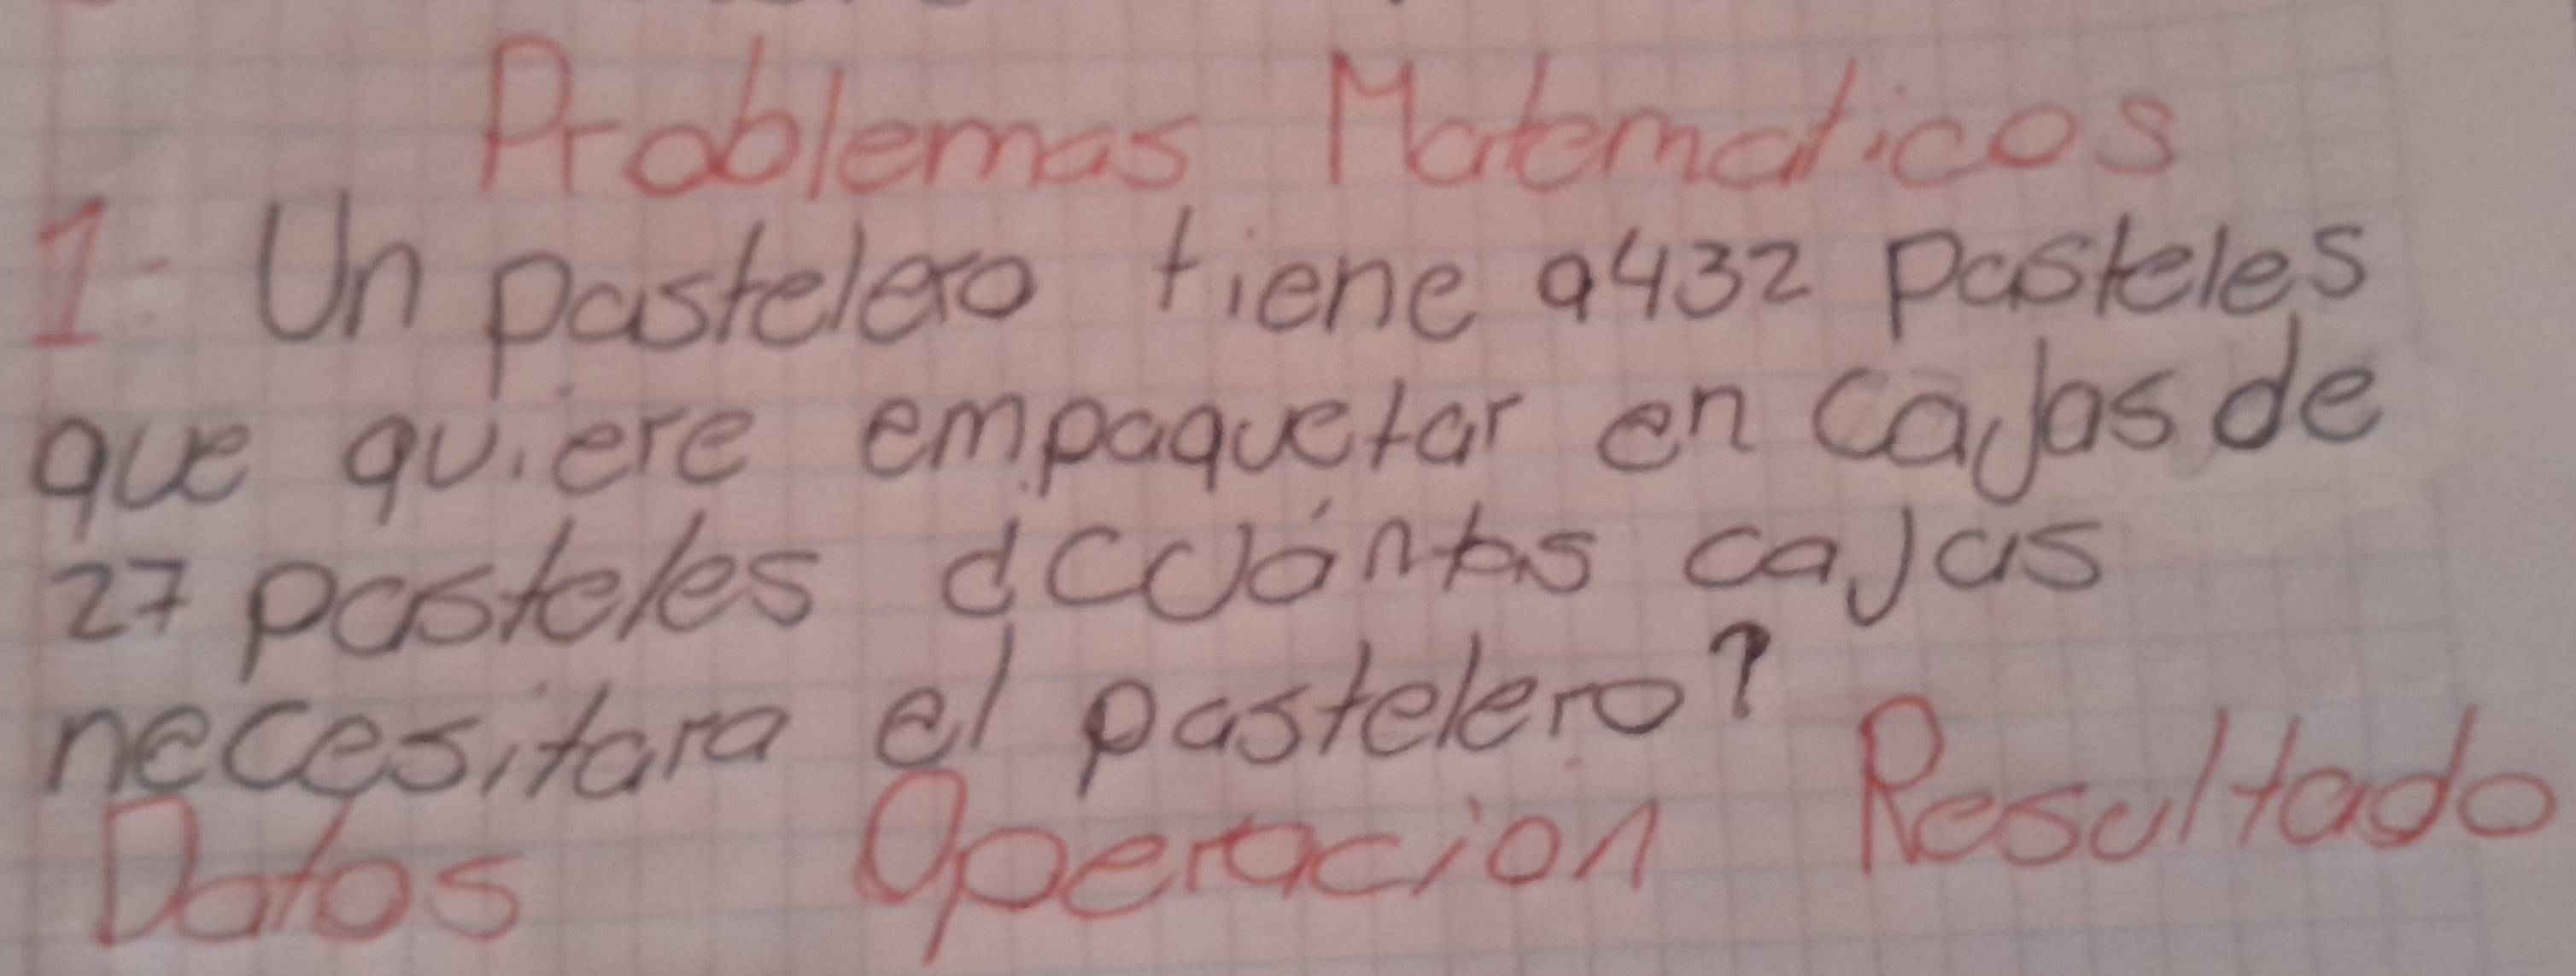 Problemas Matematicos
1- Un pastelero tiene 9432 pasteles
que quiere empaquetar en cajas de
27 pasteles ¿cuántas cajas
necesitara el pastelero?
Datos Operacion Resultado